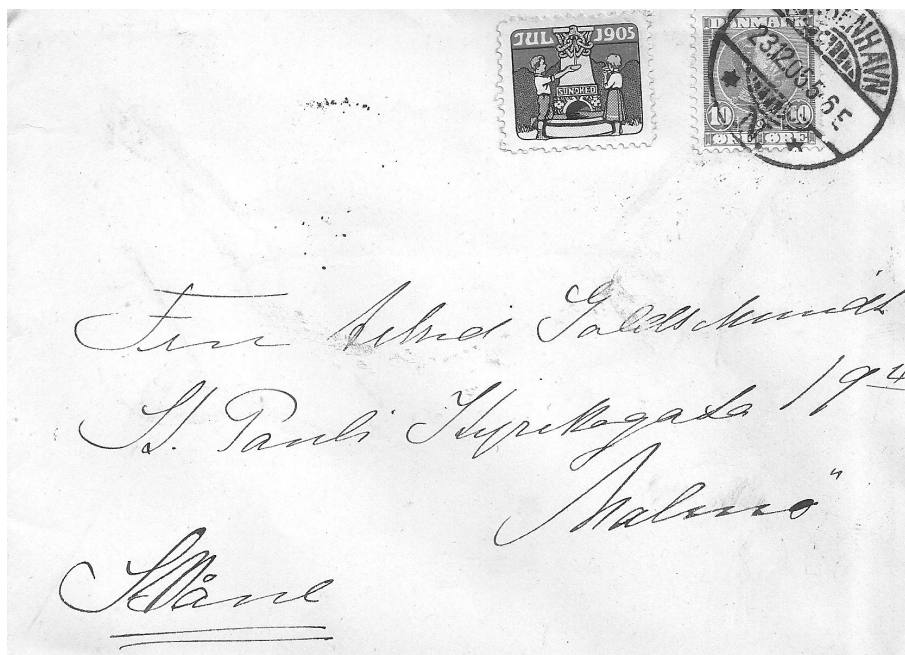 JUL 1905
SUNDHED
DANMARK
10 10
ØRE ØRE
KJØBENHAVN
23.12.05 5-6 E
Fru Astrid Goldschmidt
St. Pauli Kyrkogata 19 4
Malmö
Skåne